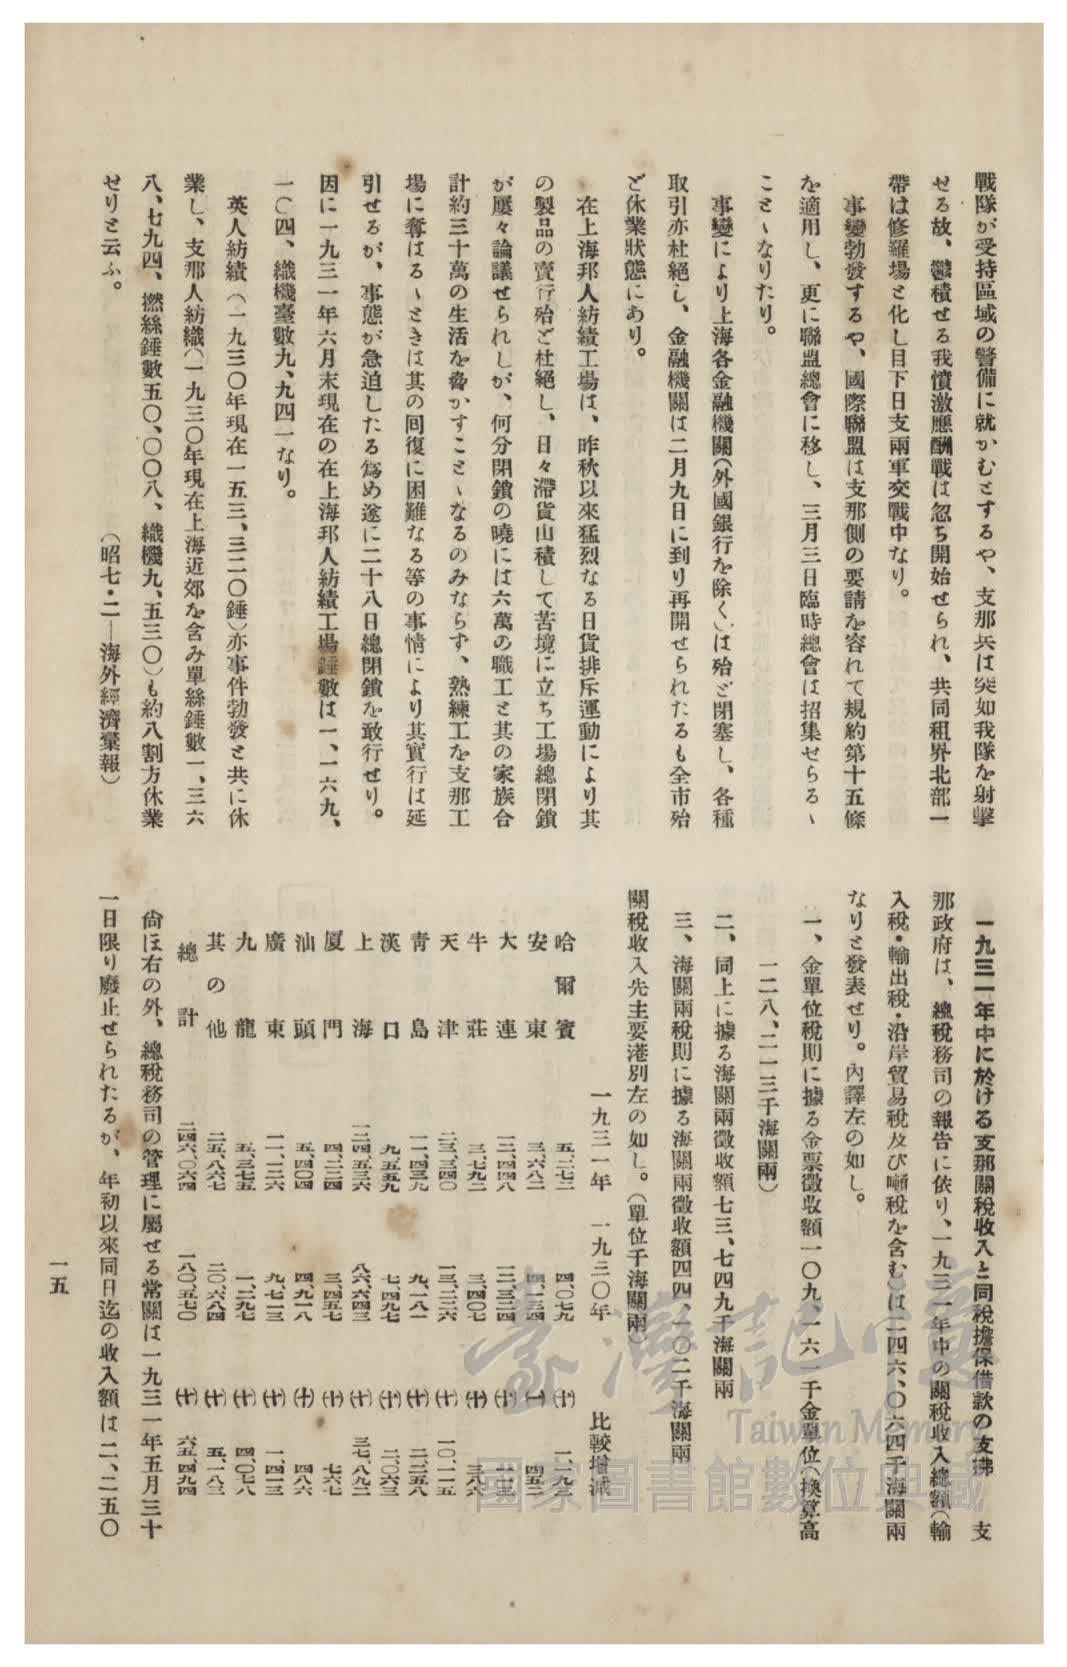 戰隊が受持區域の警備に就かむとするや、支那兵は突如我隊を射擊
せる故、鬱積せる我憤激應酬戰は忽ち開始せられ、共同租界北部一
帶は修羅場と化し目下日支兩軍交戰中なり。
事變勃發するや、國際聯盟は支那側の要請を容れて規約第十五條
を適用し、更に聯盟總會に移し、三月三日臨時總會は招集せらるゝ
ことゝなりたり。
事變により上海各金融機關(外國銀行を除く)は殆ど閉塞し、各種
取引亦杜絕し、金融機關は二月九日に到り再開せられたるも全市殆
ど休業狀態にあり。
在上海邦人紡績工場は、昨秋以來猛烈なる日貨排斥運動により其
の製品の賣行殆ど杜絕し、日々滯貨山積して苦境に立ち工場總閉鎖
が屢々論議せられしが、何分閉鎖の曉には六萬の職工と其の家族合
計約三十萬の生活を脅かすことゝなるのみならず、熟練工を支那工
場に奪はるゝときは其の回復に困難なる等の事情により其實行は延
引せるが、事態が急迫したる爲め遂に二十八日總閉鎖を敢行せり。
因に一九三一年六月末現在の在上海邦人紡績工場錘數は一、一六九、
一〇四、織機臺數九、九四一なり。
英人紡績(一九三〇年現在一五三、三二〇錘)亦事件勃發と共に休
業し、支那人紡織(一九三〇年現在上海近郊を含み單絲錘數一、三六
八、七九四、撚絲錘數五〇、〇〇八、織機九、五三〇)も約八割方休業
せりと云ふ。
(昭七・二—海外經濟彙報)
一九三一年中に於ける支那關稅收入と同稅擔保借款の支拂 支
那政府は、總稅務司の報告に依り、一九三一年中の關稅收入總額(輸
入稅・輸出稅・沿岸貿易稅及び噸稅を含む)は二四六、〇六四千海關兩
なりと發表せり。內譯左の如し。
一、金單位稅則に據る金票徵收額一〇九、一六一千金單位(換算高
一二八、二一三千海關兩)
二、同上に據る海關兩徵收額七三、七四九千海關兩
三、海關兩稅則に據る海關兩徵收額四四、一〇二千海關兩
關稅收入先主要港別左の如し。(單位千海關兩)
一九三一年 一九三〇年 比較增減
哈爾賓 五、二七二 四、〇七九 (十) 一、一九三
安東 三、六八二 四、一三四 (一) 四五二
大連 一二、四四八 一二、三二四 (十) 一二三
牛莊 三、七九二 三、四〇七 (十) 三八六
天津 二三、三四〇 一三、二二六 (十) 一〇、一一五
靑島 一一、四三九 九、一八一 (十) 二、二五八
漢口 九、五五九 七、四九七 (十) 二、〇六三
上海 一二四、五三六 八六、六四三 (十) 三七、八九二
厦門 四、二二四 三、四五七 (十) 七六七
汕頭 五、四〇四 四、九一八 (十) 四八六
廣東 一一、一二六 九、七一三 (十) 一、四一三
九龍 五、三七五 一、二九七 (十) 四、〇七八
其の他 二五、八六七 二〇、六八四 (十) 五、一八三
總計 二四六、〇六四 一八〇、五七〇 (十) 六五、四九四
尙ほ右の外、總稅務司の管理に屬せる常關は一九三一年五月三十
一日限り廢止せられたるが、年初以來同日迄の收入額は二、二五〇
一五
臺灣記憶
Taiwan Memory
國家圖書館數位典藏